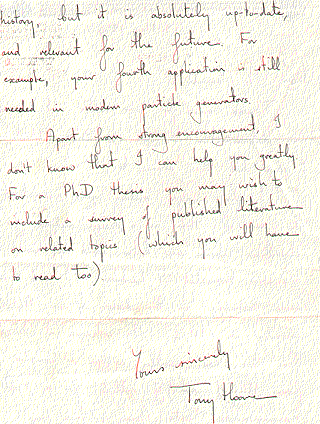 history, but it is absolutely up-to-date,
and relevant for the future. For
example, your fourth application is still
needed in modern particle generators.
Apart from strong encouragement, I
don't know that I can help you greatly
For a PhD thesis you may wish to
include a survey of published literature
on related topics (which you will have
to read too)
Yours sincerely
Tony Hoare